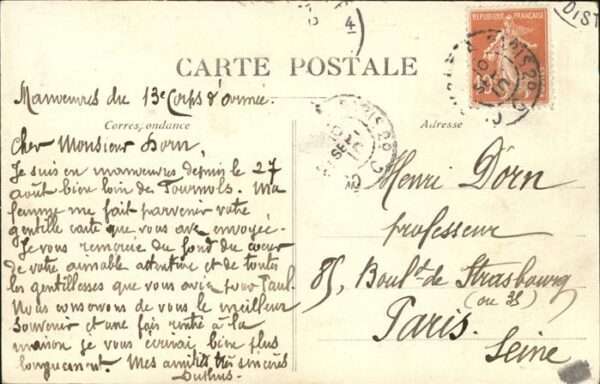 RÉPUBLIQUE FRANÇAISE
DIST
4
CARTE POSTALE
Manœuvres du 13e Corps d'armée.
Correspondance
Adresse
PARIS 20
Cher Monsieur Dorn,
Je suis en manœuvres depuis le 27
août bien loin de Tournols. Ma
femme me fait parvenir votre
gentille carte que vous avez envoyée.
Je vous remercie du fond du cœur
de votre aimable attention et de toutes
les gentillesses que vous avez pour Paul.
Nous conservons de vous le meilleur
souvenir et une fois rentré à la
maison je vous écrirai bien plus
longuement. Mes amitiés très sincères
Henri Dorn
professeur
85, Boult de Strasbourg
(ou 35)
Paris.
Seine